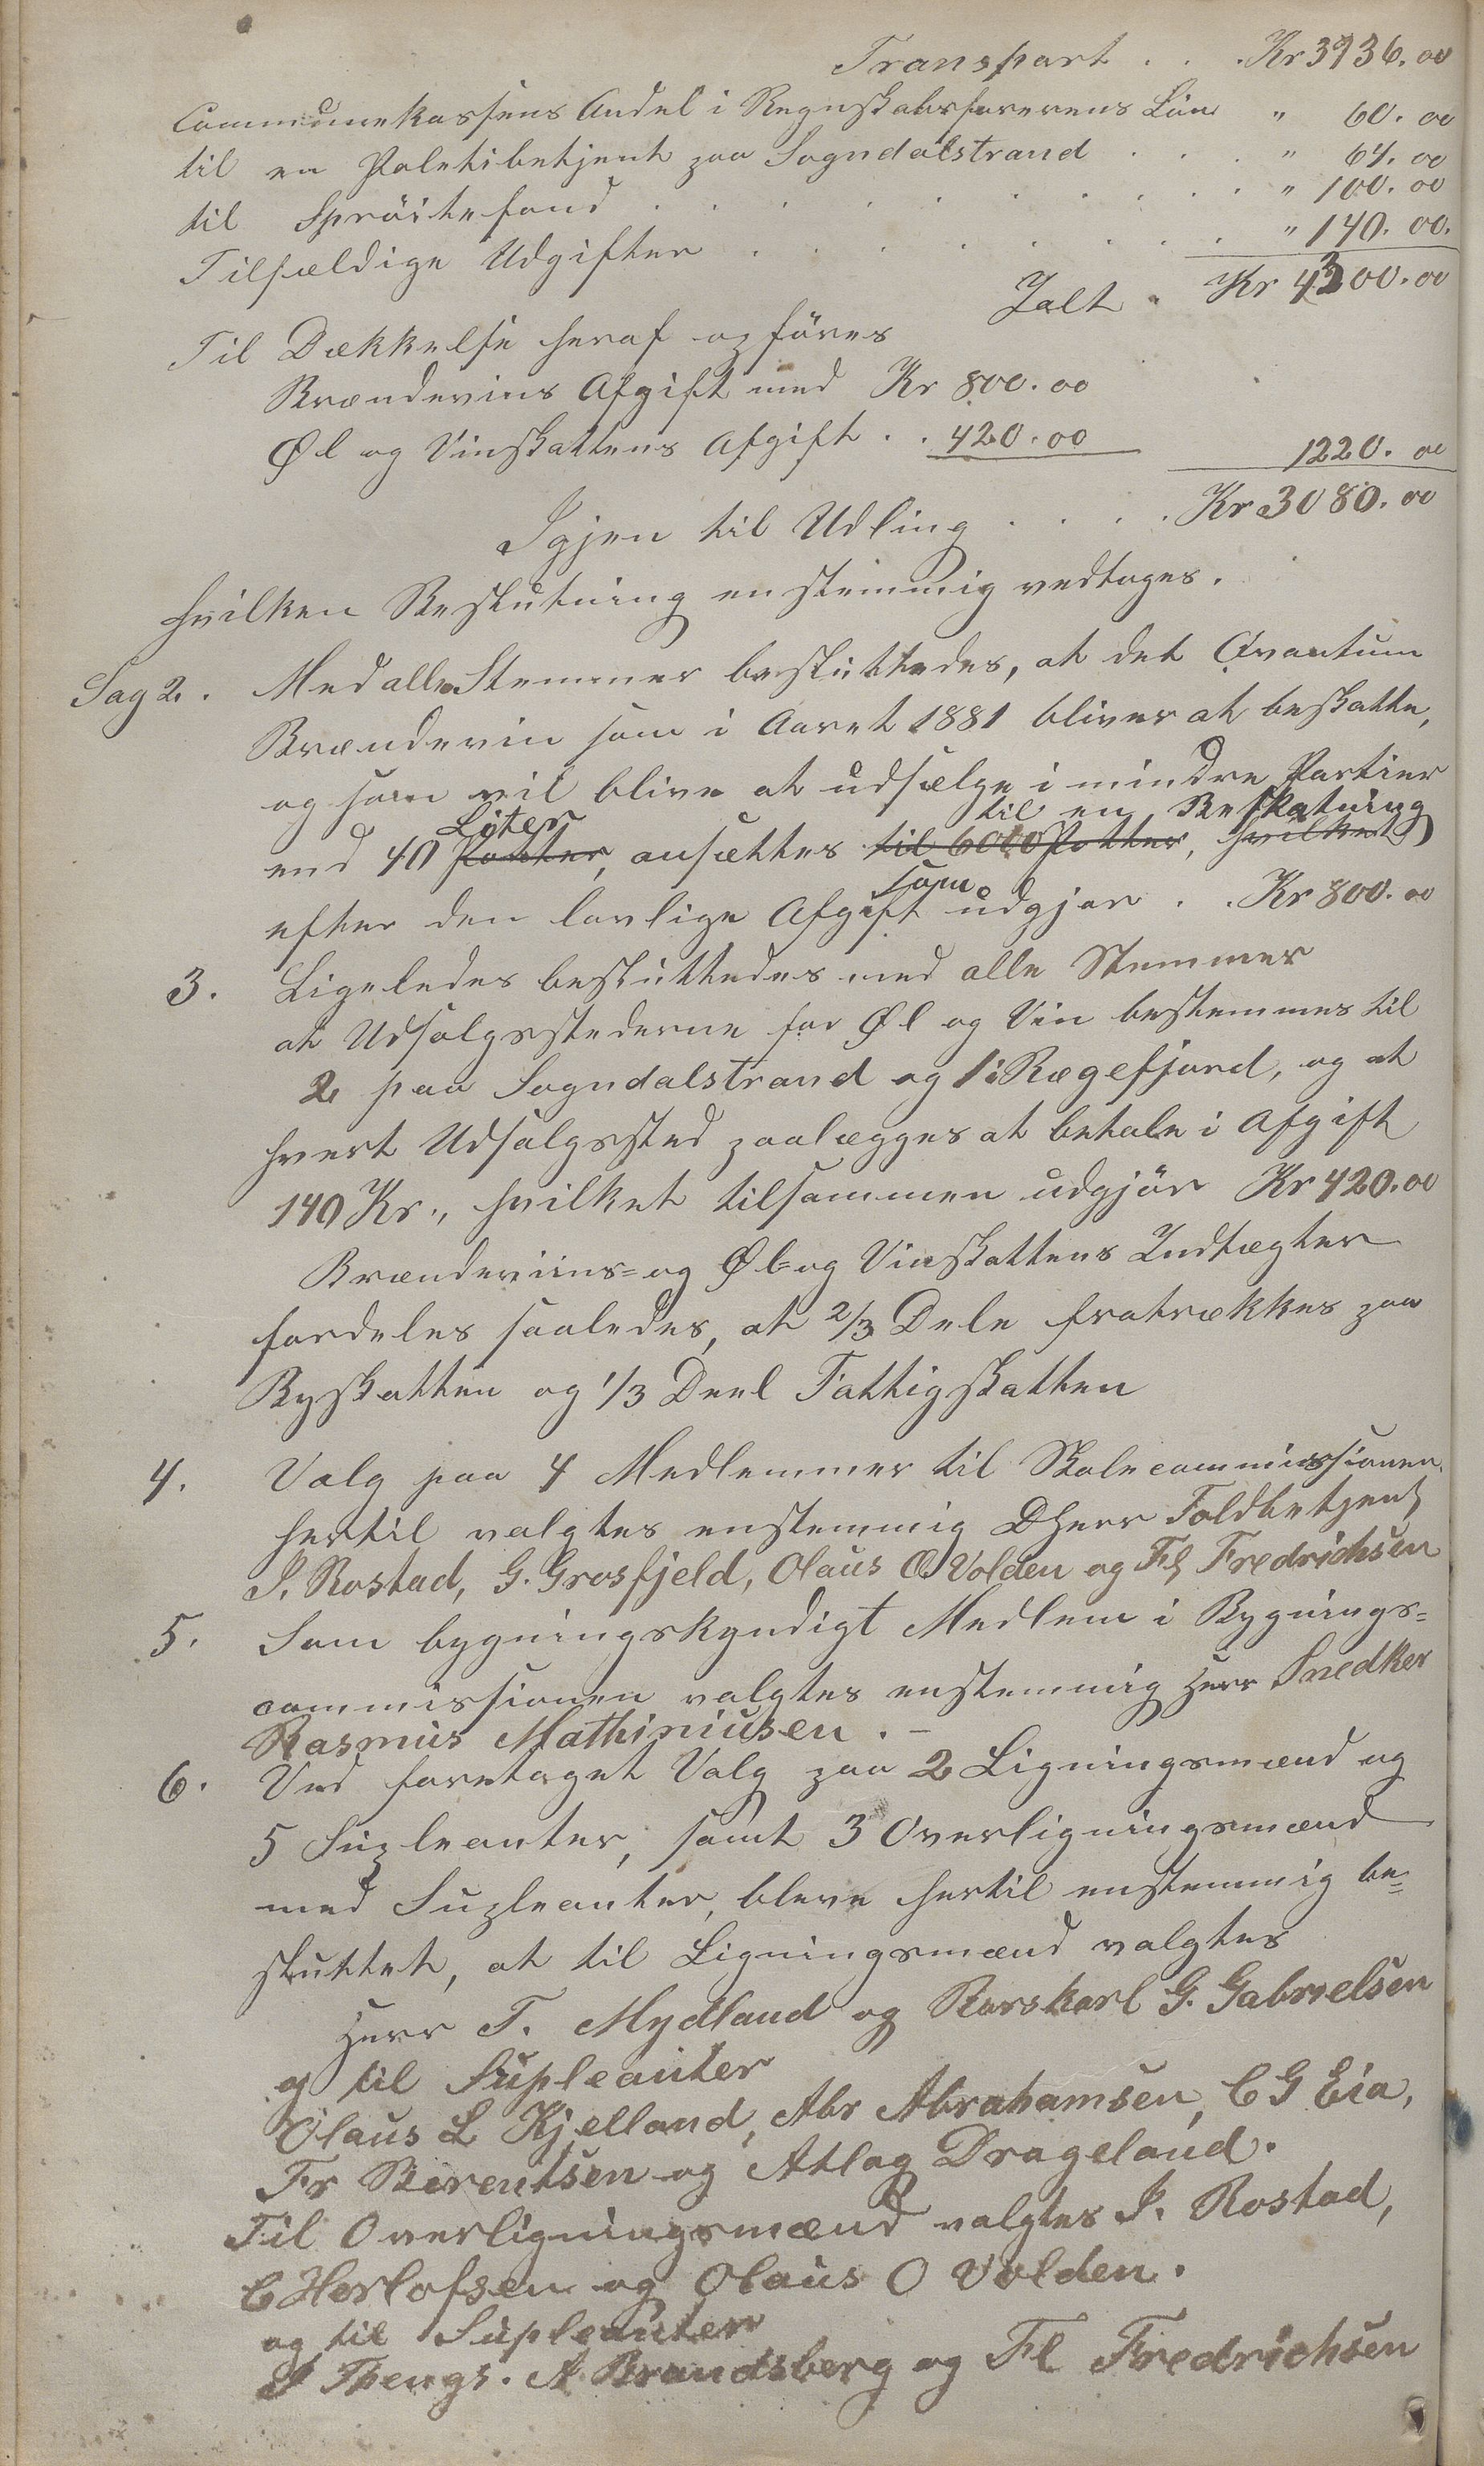 Transport . . . Kr 3936. 00
Communekassens Andel i Regnskabsførerens Løn " 60. 00
til en Politibetjent paa Sogndalstrand . . . " 64. 00
til Sprøitefond . . . . . . . . . " 100. 00
Tilfældige Udgifter . . . . . . . " 140. 00.
Ialt . Kr 4300. 00
Til Dækkelse heraf opføres
Brændevins Afgift med Kr 800. 00
Øl og Vinskattens Afgift . . 420. 00 1220. 00
Igjen til Udling . . . . Kr 3080. 00
hvilken Beslutning enstemmig vedtoges.
Sag 2. Med alle Stemmer besluttedes, at det Qvantum
Brændevin som i Aaret 1881 bliver at beskatte,
og som vil blive at udsælge i mindre Partier
Liter til en Beskatning
end 40 Potter, ansættes til 6000 Potter, hvilket
som
efter den lovlige Afgift udgjør . . Kr 800. 00
3. Ligeledes besluttedes med alle Stemmer
at Udsalgsstederne for Øl og Vin bestemmes til
2 paa Sogndalstrand og 1 i Rægefjord, og at
hvert Udsalgssted paalægges at betale i Afgift
140 Kr., hvilket tilsammen udgjør Kr 420. 00
Brændeviins- og Øl- og Vinskattens Indtægter
fordeles saaledes, at 2/3 Dele fratrækkes paa
Byskatten og 1/3 Deel Fattigskatten
4. Valg paa 4 Medlemmer til Skolecommissionen.
hertil valgtes enstemmig DHerr Toldbetjent
J. Rostad, G. Grosfjeld, Olaus O Volden og Fl Fredrichsen
5. Som bygningskyndigt Medlem i Bygnings=
commissionen valgtes enstemmig Herr Snedker
Rasmus Mathiniusen . –
6. Ved foretaget Valg paa 2 Ligningsmænd og
5 Supleanter, samt 3 Overligningsmænd
med Supleanter, bleve hertil enstemmig be=
sluttet, at til Ligningsmænd valgtes
Herr T. Mydland og Rorskarl G. Gabrielsen
og til Supleanter
Olaus L Kjelland, Abr Abrahamsen, C G Eia,
Fr Berentsen og Atlag Drageland.
Til Overligningsmænd valgtes J. Rostad,
C Herlofsen og Olaus O Volden.
og til Supleanter
J Thengs. A Brandsberg og Fl Fredrichsen